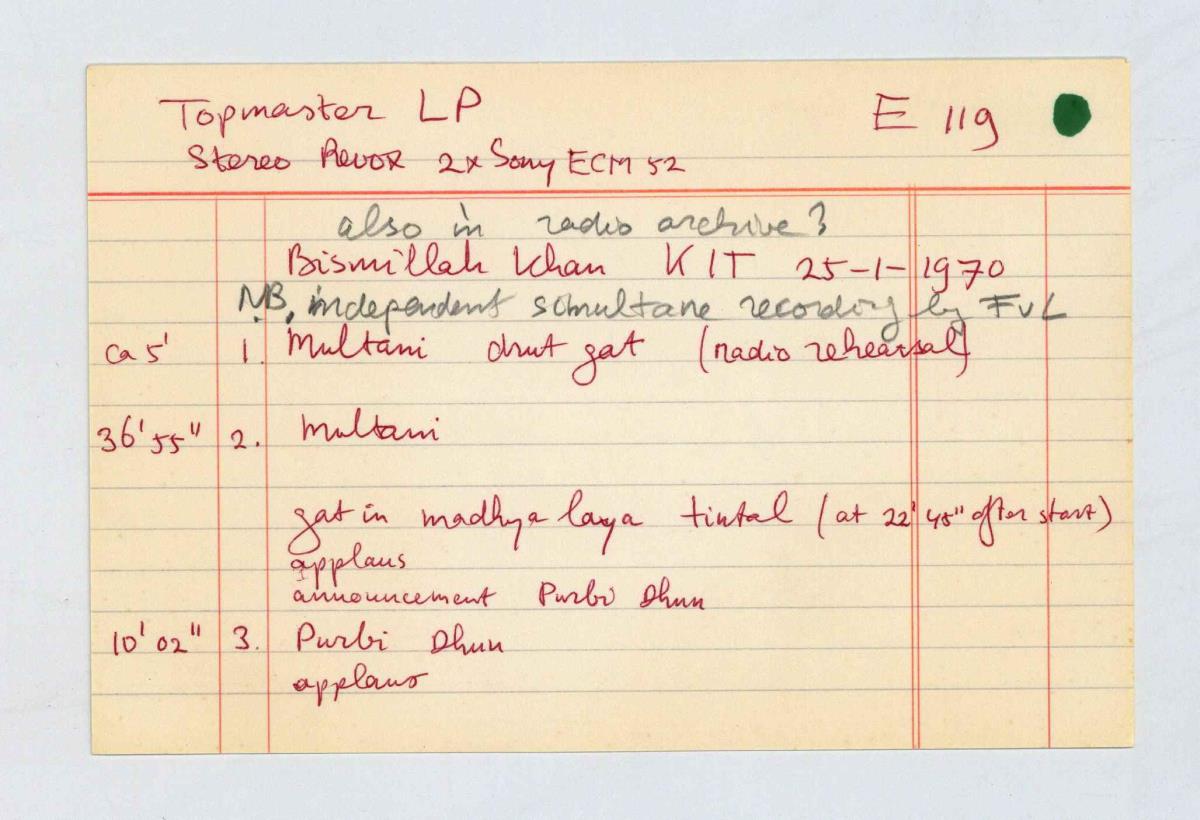 Topmaster LP E 119
Stereo Revox 2x Sony ECM 52
also in radio archive?
Bismillah Khan KIT 25-1-1970
N.B. independent simultane recording by FvL
ca 5' 1. Multani drut gat (radio rehearsal)
36' 55" 2. Multani
gat in madhya laya tintal (at 22' 45" after start)
applaus
announcement Purbi Dhun
10' 02" 3. Purbi Dhun
applaus